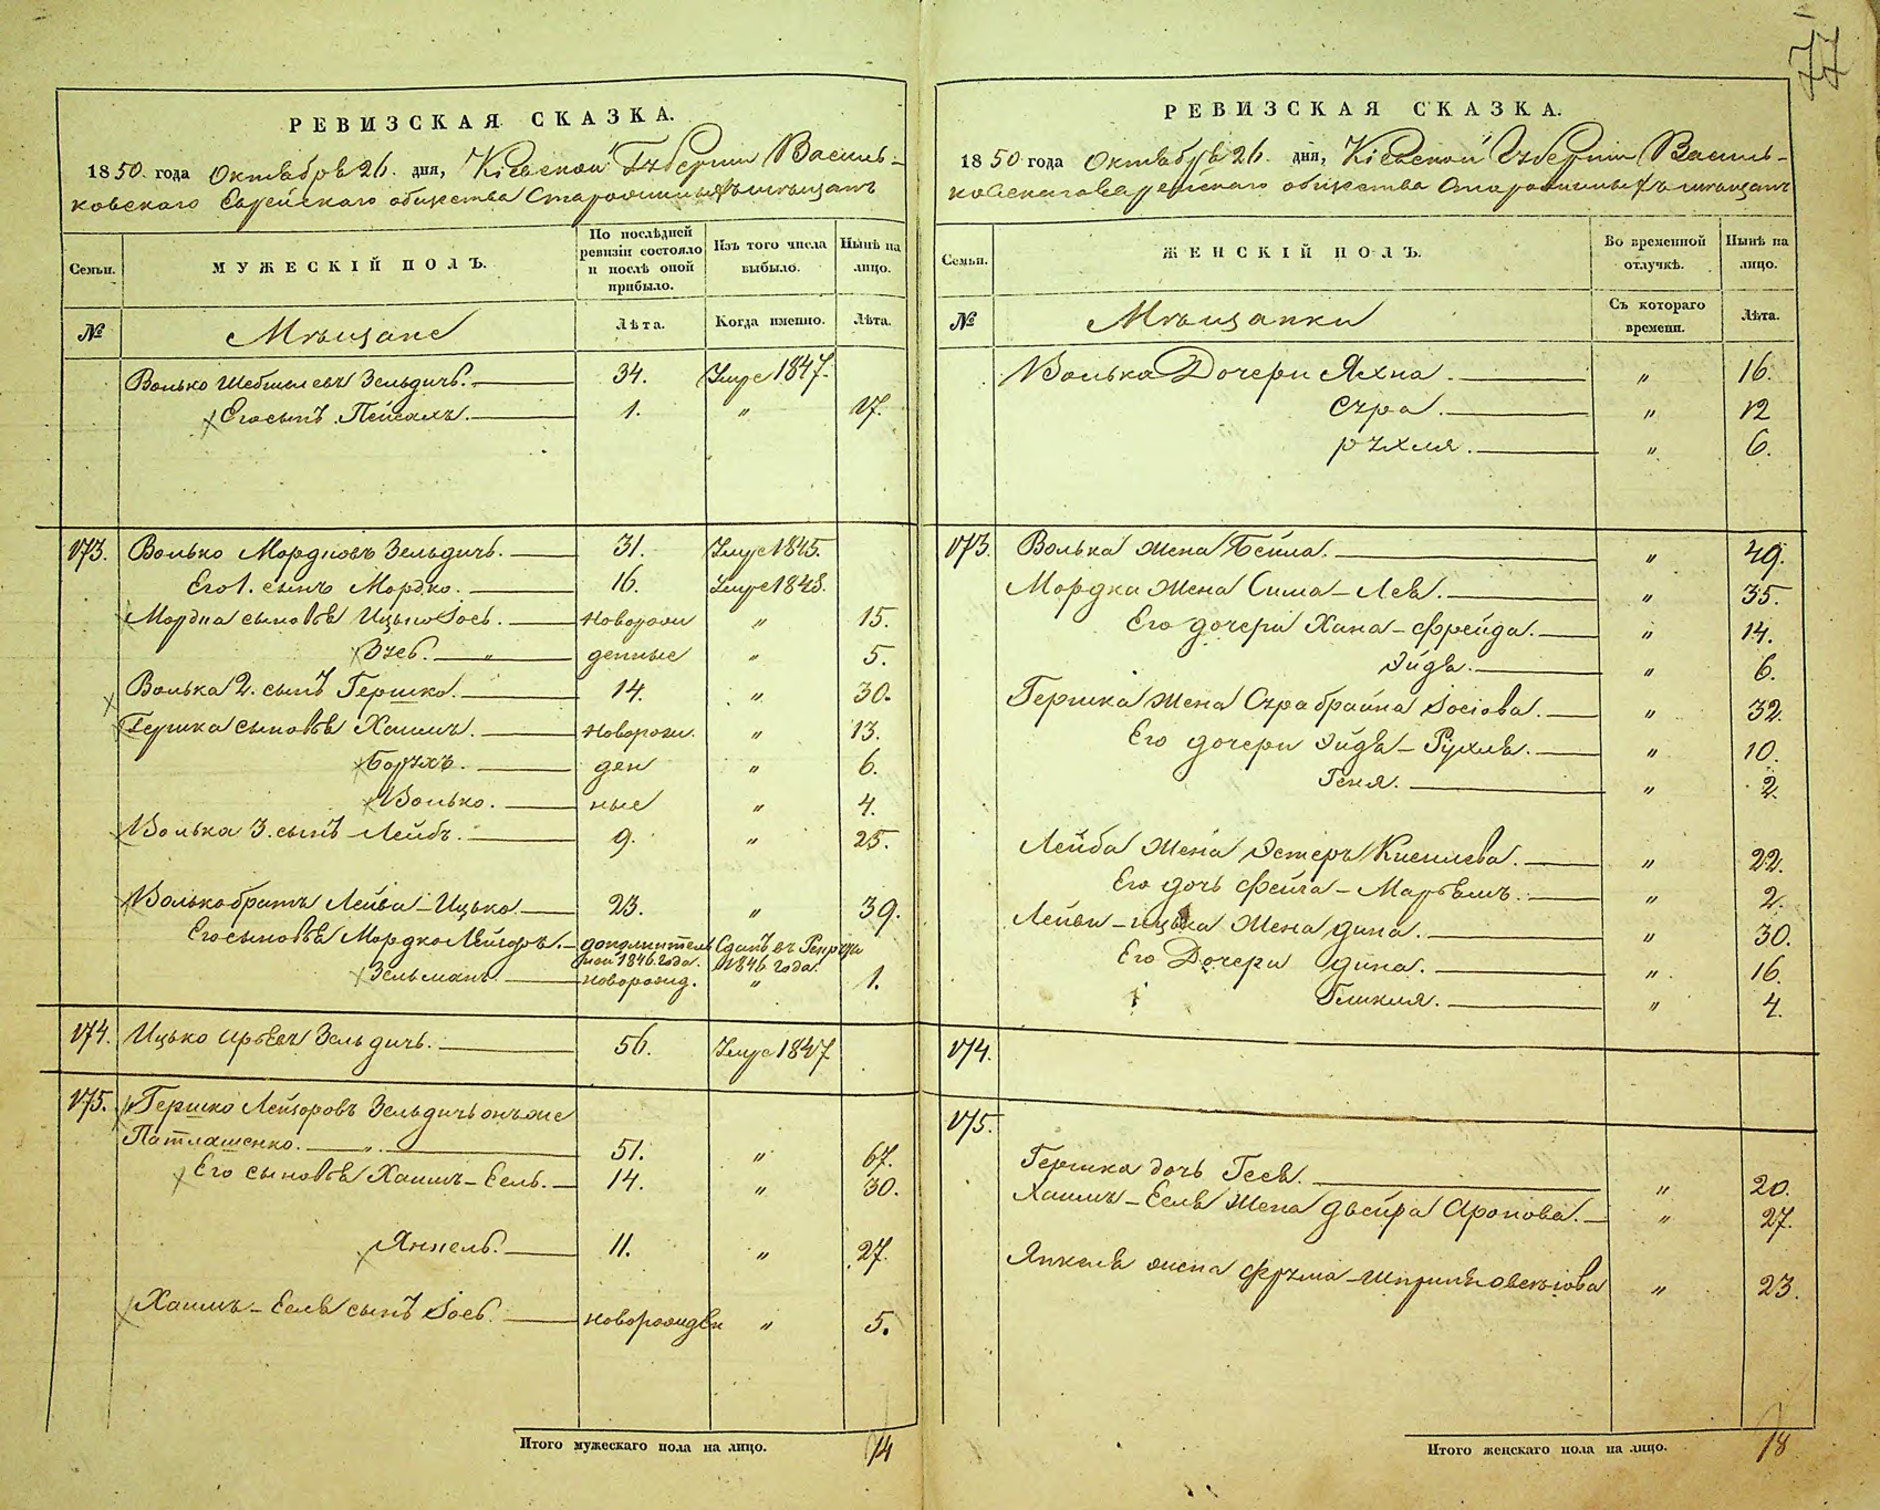 77
РЕВИЗСКАЯ СКАЗКА.
1850 года Октября 26. дня, Кіевской Губерніи Василь-
ковскаго Еврейскаго общества Старожилыхъ мѣщанъ
Семьи. МУЖЕСКІЙ ПОЛЪ. По послѣдней ревизіи состояло и послѣ оной прибыло. Изъ того числа выбыло. Нынѣ на лицо.
№ Мѣщане Лѣта. Когда именно. Лѣта.
Волько Зельдичъ. 34. Умре 1847.
Его сынъ Пейсахъ. 1. " 17.
173. Волько Мордковъ Зельдичъ. 31. Умре 1845.
Его 1. сынъ Мордко. 16. Умре 1848.
Мордка сыновья Ицько Іось. новорож " 15.
Зусь. " денные " 5.
Волька 2. сынъ Гершко. 14. " 30.
Гершка сыновья Хаимъ. новорож. " 13.
Борухъ. ден " 6.
Волько. ные " 4.
Волька 3. сынъ Лейбъ. 9. " 25.
Волька братъ Лейви-Ицько 23. " 39.
Его сыновья Мордко Лейзоръ. дополнитель Сданъ въ Рекруты
ной 1846 года. 1846 года.
Зельманъ. новорожд. " 1.
174. Ицько Арьевъ Зельдичъ. 56. Умре 1847
175. Гершко Лейзоровъ Зельдичь онъ же
Патлашенко. " 51. " 67.
Его сыновья Хаимъ-Есель. 14. " 30.
Янкель. 11. " 27.
Хаимъ-Еселя сынъ Іось. новорожден " 5.
Итого мужескаго пола на лицо. 14
РЕВИЗСКАЯ СКАЗКА.
1850 года Октября 26. дня, Кіевской Губерніи Василь-
ковскаго Еврейскаго общества Старожилыхъ мѣщанъ
Семьи. ЖЕНСКІЙ ПОЛЪ. Во временной отлучкѣ. Нынѣ на лицо.
№ Мѣщанки Съ котораго времени. Лѣта.
Волька Дочери Яхна. " 16.
Сура. " 12
Рухля. " 6.
173. Волька жена Бейла. " 49.
Мордка жена Сима-Лея. " 35.
Его дочери Хана-Фрейда. " 14.
Эйдя. " 6.
Гершка жена Сура брайна Іосіова. " 32.
Его дочери Эйдя-Рухля. " 10.
Геня. " 2
Лейба жена Эстеръ Киселева. " 22.
Его дочь Фейга-Марьемъ. " 2.
Лейви-ицька жена дина. " 30.
Его Дочери дина. " 16.
Гликля. " 4.
174.
175.
Гершка дочь Гися. " 20.
Хаимъ-Еселя жена двейра Аронова. " 27.
Янкеля жена Фрума-Шпринца " 23.
Итого женскаго пола на лицо. 18